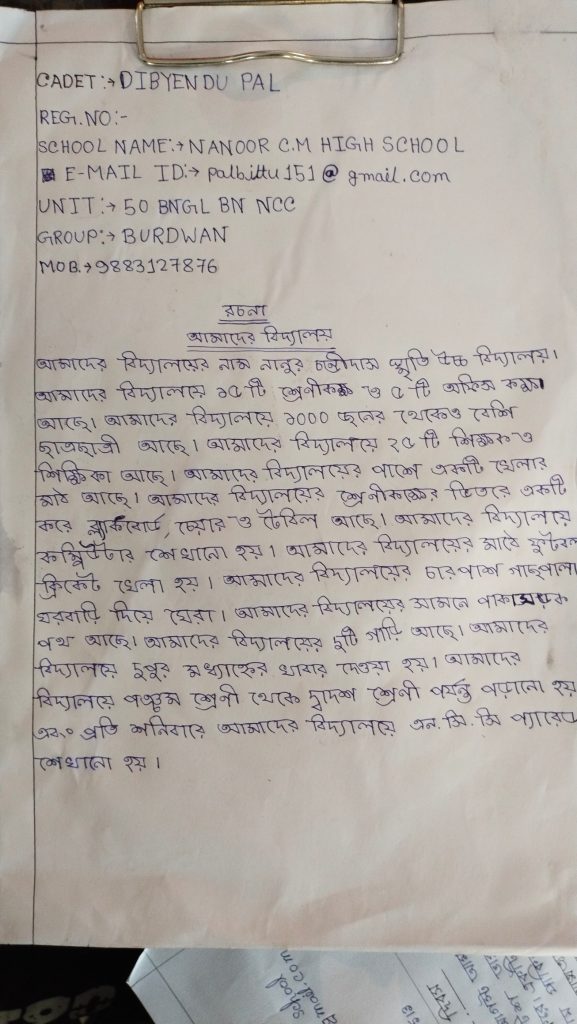 CADET:→ DIBYENDU PAL
REG.NO:-
SCHOOL NAME:→ NANOOR C.M HIGH SCHOOL
E-MAIL ID:→ palbittu151@gmail.com
UNIT:→ 50 BNGL BN NCC
GROUP:→ BURDWAN
MOB.→9883127876
রচনা
আমাদের বিদ্যালয়
আমাদের বিদ্যালয়ের নাম নানুর চন্ডীদাস স্মৃতি উচ্চ বিদ্যালয়।
আমাদের বিদ্যালয়ে ১৫টি শ্রেণীকক্ষ ও ৫ টি অফিস কক্ষ
আছে। আমাদের বিদ্যালয়ে ১০০০ জনের থেকেও বেশি
ছাত্রছাত্রী আছে। আমাদের বিদ্যালয়ে ২৫ টি শিক্ষক ও
শিক্ষিকা আছে। আমাদের বিদ্যালয়ের পাশে একটি খেলার
মাঠ আছে। আমাদের বিদ্যালয়ের শ্রেণীকক্ষের ভিতরে একটি
করে ব্ল্যাকবোর্ড, চেয়ার ও টেবিল আছে। আমাদের বিদ্যালয়ে
কম্পিউটার শেখানো হয়। আমাদের বিদ্যালয়ের মাঠে ফুটবল
ক্রিকেট খেলা হয়। আমাদের বিদ্যালয়ের চারপাশ গাছপালা
ঘরবাড়ি দিয়ে ঘেরা। আমাদের বিদ্যালয়ের সামনে পাকা সড়ক
পথ আছে। আমাদের বিদ্যালয়ের দুটি গাড়ি আছে। আমাদের
বিদ্যালয়ে দুপুর মধ্যাহ্নের খাবার দেওয়া হয়। আমাদের
বিদ্যালয়ে পঞ্চম শ্রেণী থেকে দ্বাদশ শ্রেণী পর্যন্ত পড়ানো হয়
এবং প্রতি শনিবারে আমাদের বিদ্যালয়ে এন.সি.সি প্যারেড
শেখানো হয়।
school